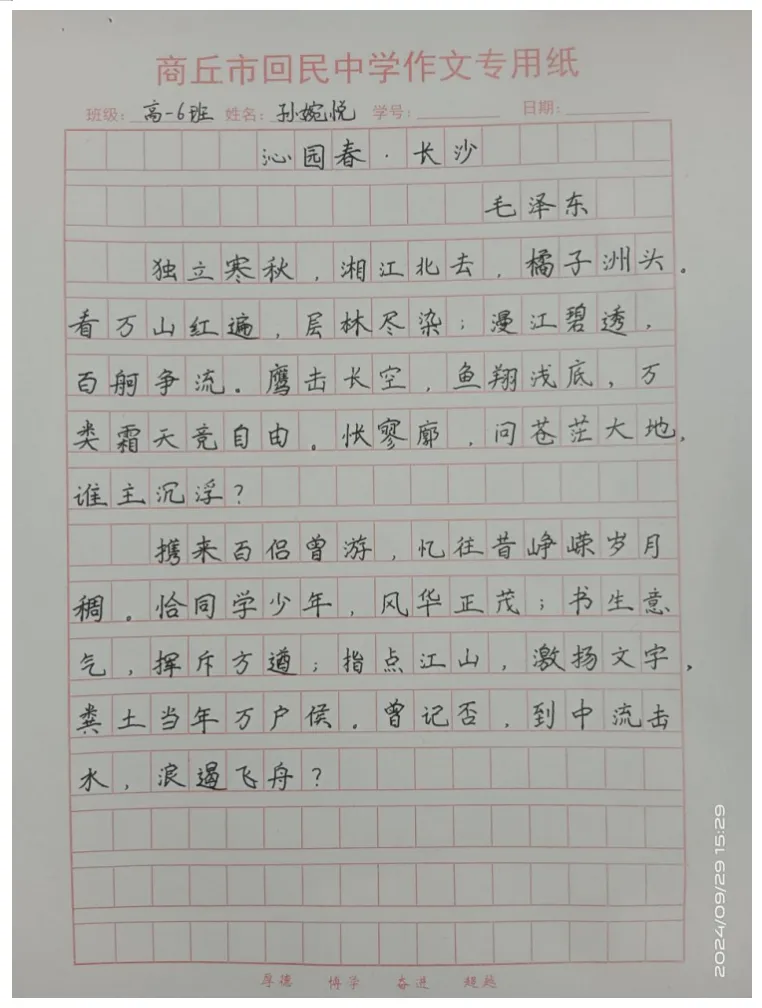 商丘市回民中学作文专用纸
班级: 高一6班 姓名: 孙婉悦 学号: 日期:
沁园春·长沙
毛泽东
独立寒秋，湘江北去，橘子洲头。
看万山红遍，层林尽染；漫江碧透，
百舸争流。鹰击长空，鱼翔浅底，万
类霜天竞自由。怅寥廓，问苍茫大地，
谁主沉浮？
携来百侣曾游，忆往昔峥嵘岁月
稠。恰同学少年，风华正茂；书生意
气，挥斥方遒；指点江山，激扬文字，
粪土当年万户侯。曾记否，到中流击
水，浪遏飞舟？
厚德 博学 奋进 超越
2024/09/29 15:29